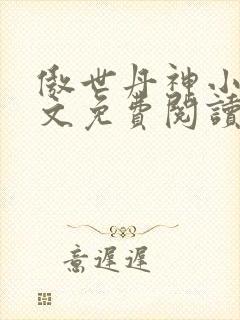 傲世丹神小
文免費閱讀
意遲遲